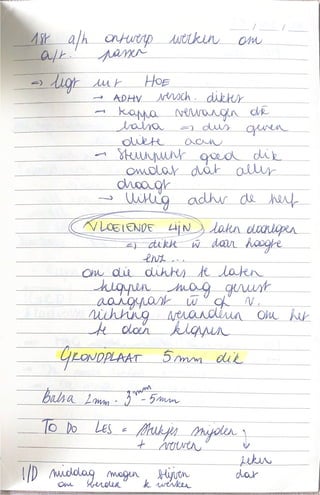 1st a/h ontwerp werken om
a/t. passen
=> legt uit HOE
→ ADHV versch. diktes
→ kappa vervangen dr
balsa => dus geven
dikte aan
→ Steunpunt goed dik
omdat dat alles
draagt
→ Uitleg adhv de
VLOEIENDE LIJN laten doorlopen
=> dikte w door hoogte
enz...
om die diktes te laten
kloppen mag gerust
aangepast w of v.
richting veranderen om het
te doen kloppen
GRONDPLAAT 5mm dik
balsa 2mm - 3mm - 5mm
TO DO LES = stukjes snijden
+ vouwen
zeker
I/D middag mogen blijven dat
om verder te werken